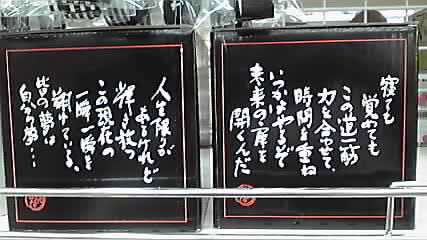 寝ても
覚めても
この道一筋
力を合わせて、
時間を重ね
いつかはやるぞ
未来の扉を
開くんだ
人生限りが
あるけれど
輝き放つ
この現在の
一瞬一瞬を
翔けている、
皆の夢は